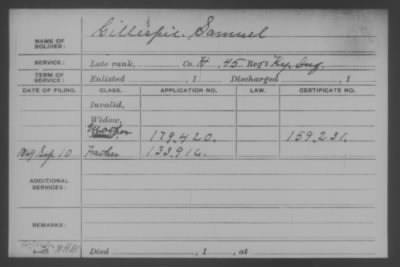 NAME OF SOLDIER: Gillespie Samuel
SERVICE: Late rank, Co. H, 45 Reg't Ky. Inf.
TERM OF SERVICE: Enlisted , 1 Discharged , 1
DATE OF FILING. CLASS. APPLICATION NO. LAW. CERTIFICATE NO.
Invalid,
Widow,
Mother 179,420. 159,231.
Sep 10 Father 133,916.
ADDITIONAL SERVICES:
REMARKS:
Died , 1 , at